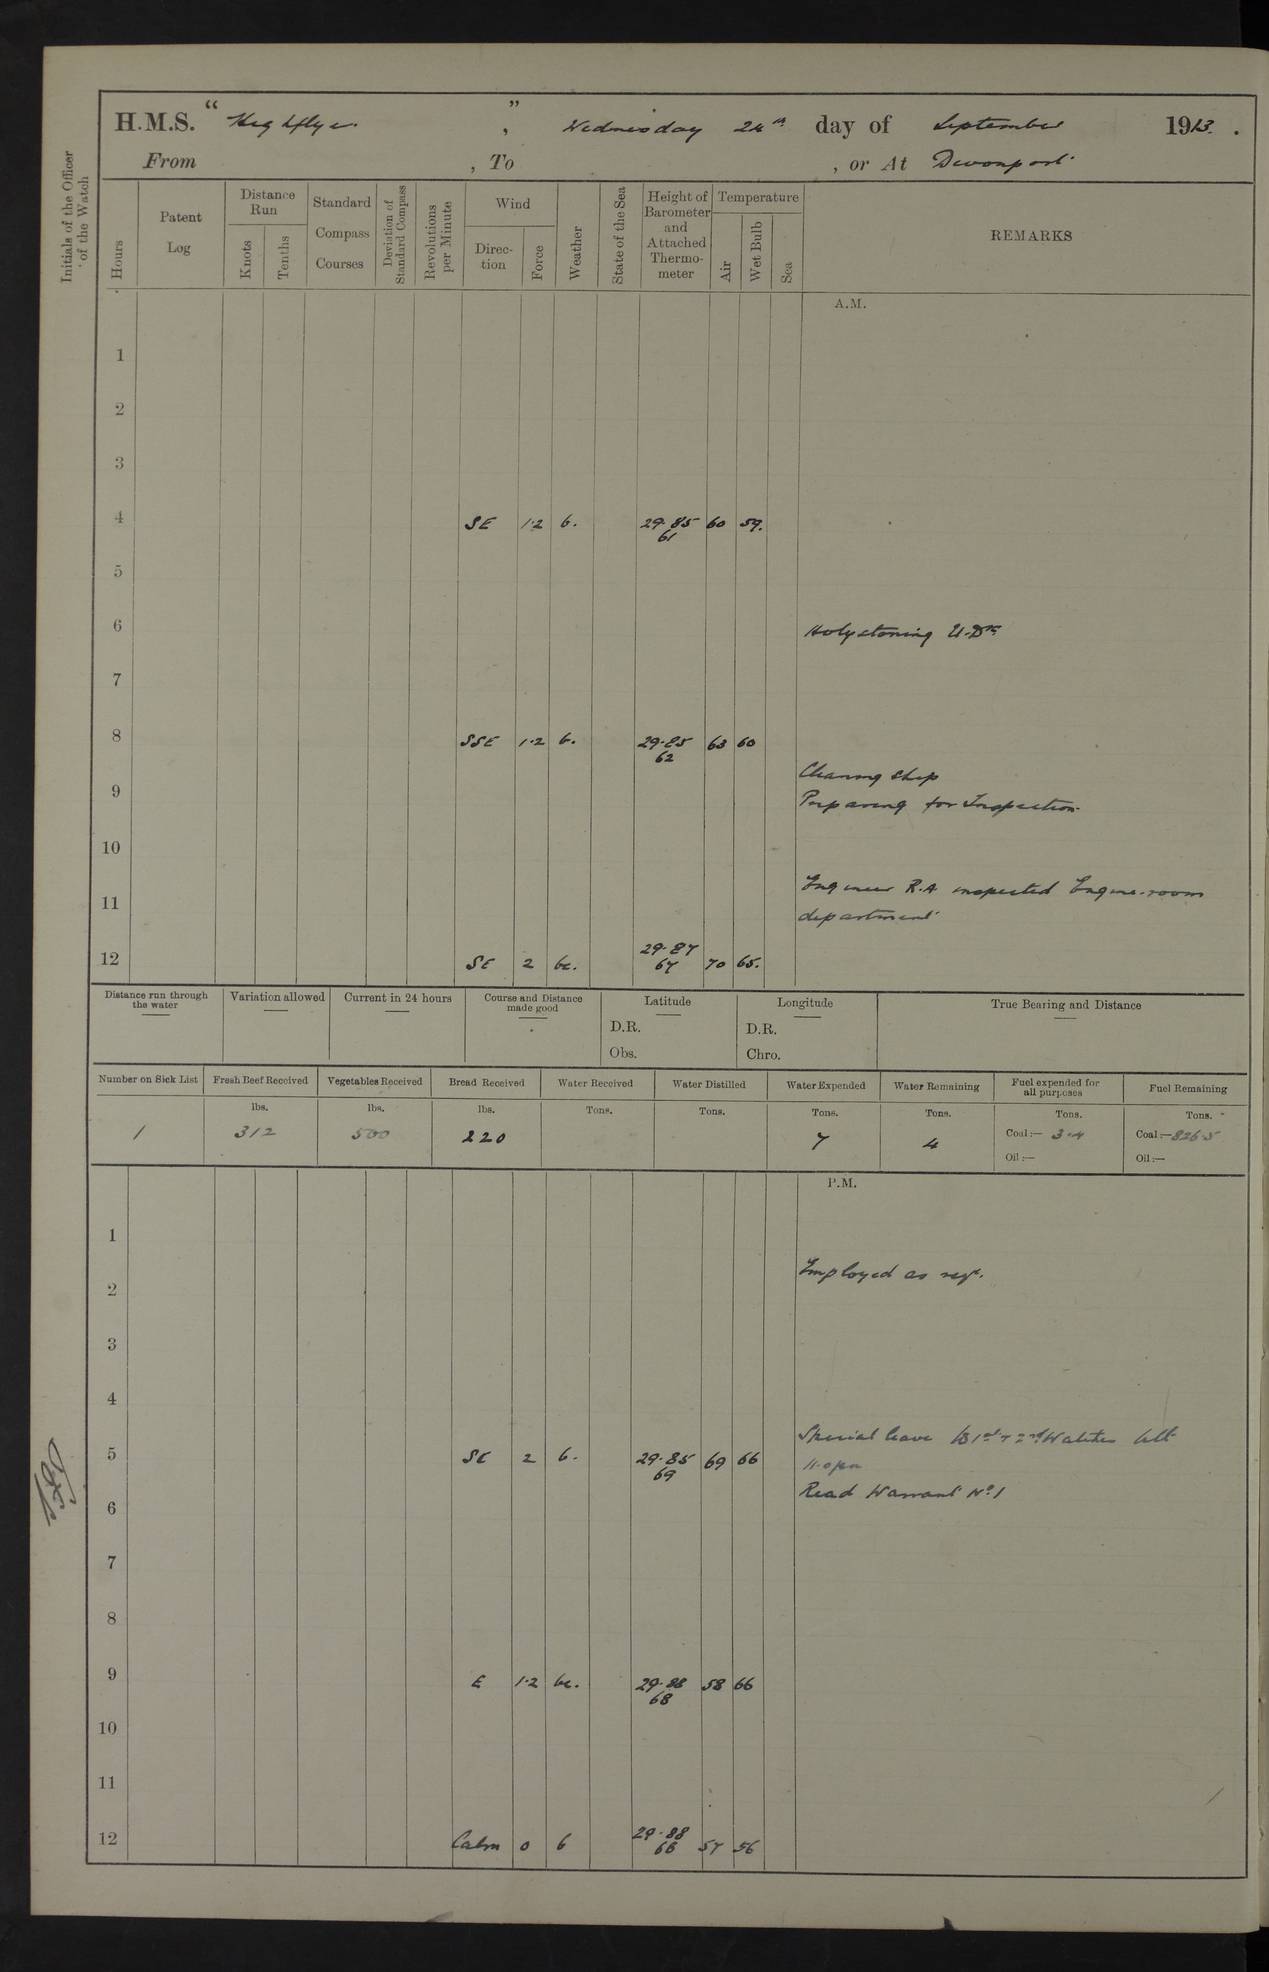 H.M.S. "Highflyer.", Wednesday 24th day of September 1913.
From , To , or At Devonport
Initials of the Officer of the Watch
Hours
Patent Log
Distance Run
Knots
Tenths
Standard Compass Courses
Deviation of Standard Compass
Revolutions per Minute
Wind
Direction
Force
Weather
State of the Sea
Height of Barometer and Attached Thermometer
Temperature
Air
Wet Bulb
Sea
REMARKS
A.M.
1
2
3
4 SE 1·2 b. 29·85 61 60 59.
5
6 Holystoning U.Dk
7
8 SSE 1·2 b. 29·85 62 63 60
Cleaning Ship
9 Preparing for Inspection
10
Engineer R.A inspected Engine-room
11 department
12 SE 2 bc. 29·87 67 70 65.
Distance run through the water
Variation allowed
Current in 24 hours
Course and Distance made good
Latitude
D.R.
Obs.
Longitude
D.R.
Chro.
True Bearing and Distance
Number on Sick List
1
Fresh Beef Received
lbs.
312
Vegetables Received
lbs.
500
Bread Received
lbs.
220
Water Received
Tons.
Water Distilled
Tons.
Water Expended
Tons.
7
Water Remaining
Tons.
4
Fuel expended for all purposes
Tons.
Coal:— 3·4
Oil:—
Fuel Remaining
Tons.
Coal:— 826·5
Oil:—
P.M.
1
Employed as req.
2
3
4
Special leave to 1st + 2nd Watches till
5 SE 2 b. 29·85 69 69 66
11.0 pm
Read Warrant No 1
6
7
8
9 E 1·2 bc. 29·88 68 58 66
10
11
12 Calm 0 b 29·88 66 57 56